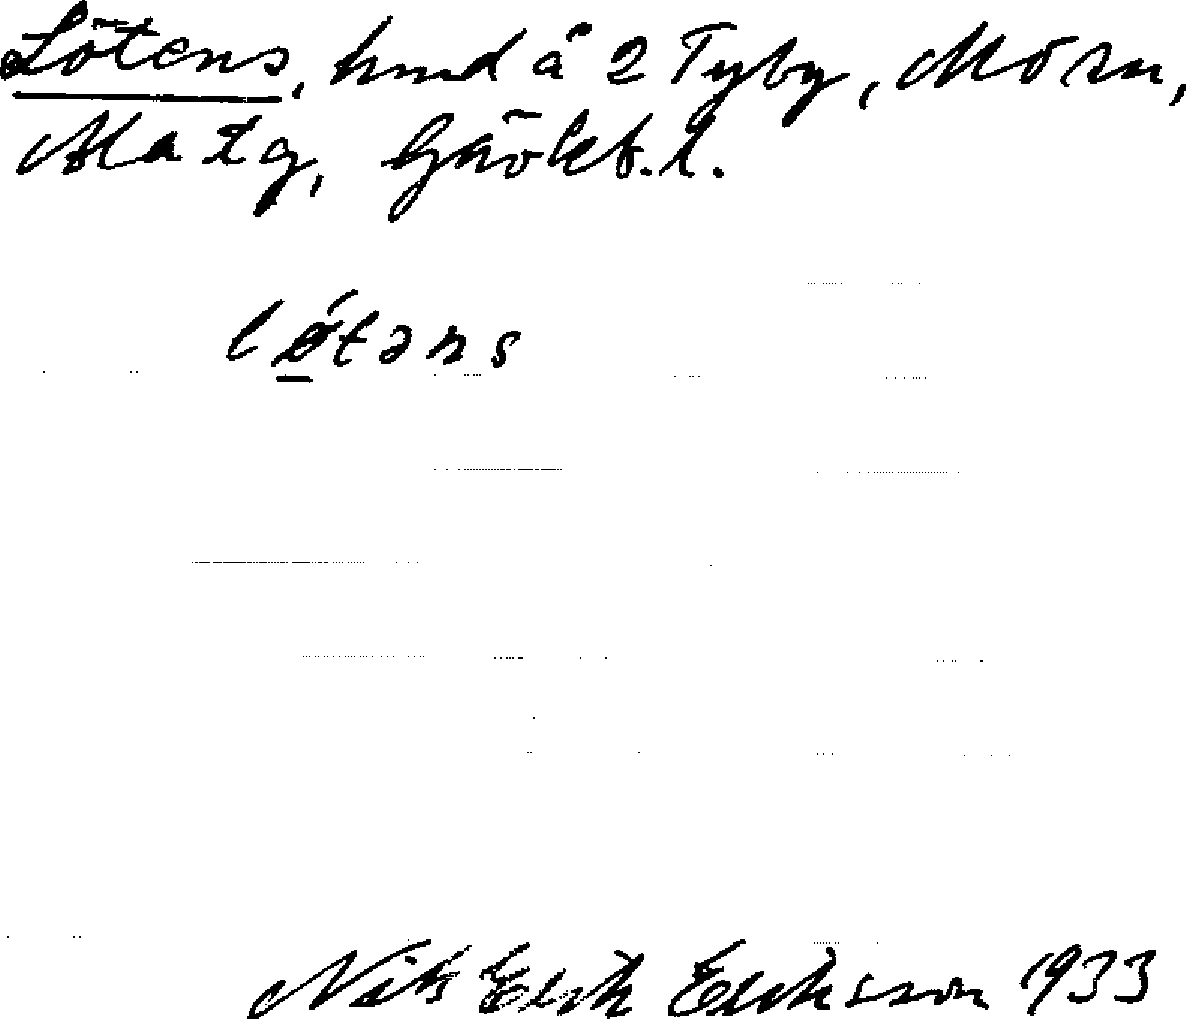 Lötens, hmd å 2 Tyby, Mo sn,
Ala tg, Gävleb. l.
lǿ̠təns
Nils Erik Eriksson 1933